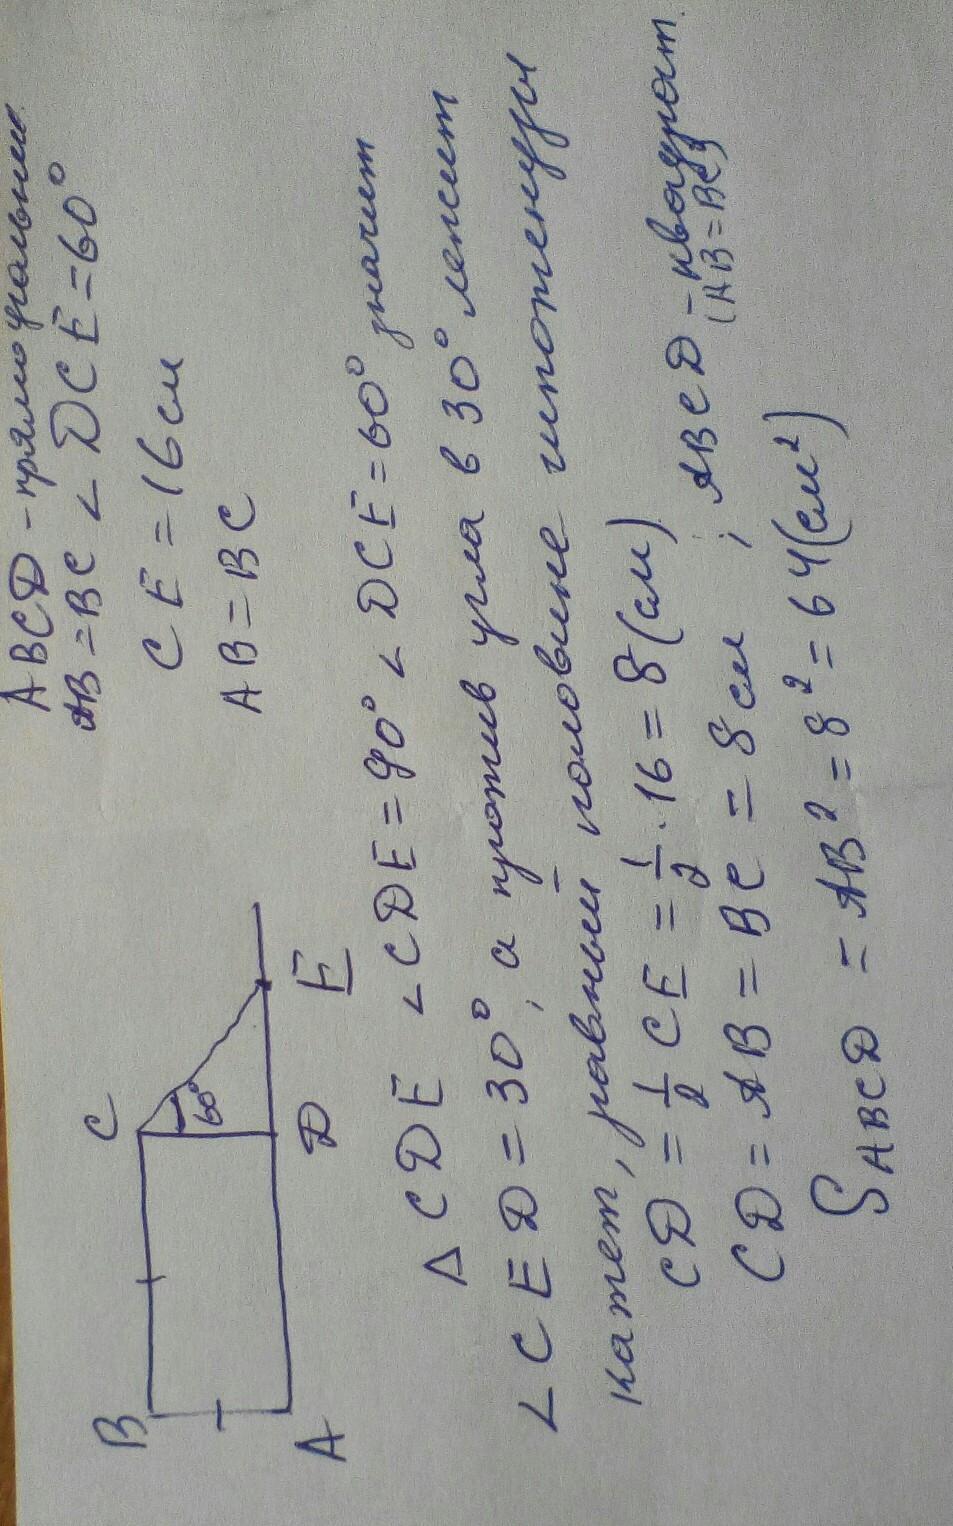 ABCD - прямоугольник
AB = BC ∠DCE = 60°
CE = 16 см
AB = BC
B
C
60°
A
D
E
Δ CDE ∠CDE = 90° ∠DCE = 60° значит
∠CED = 30°, а против угла в 30° лежит
катет, равный половине гипотенузы
CD = 1/2 CE = 1/2 · 16 = 8 (см)
CD = AB = BC = 8 см ; ABCD - квадрат.
(AB = BC)
S ABCD = AB² = 8² = 64 (см²)